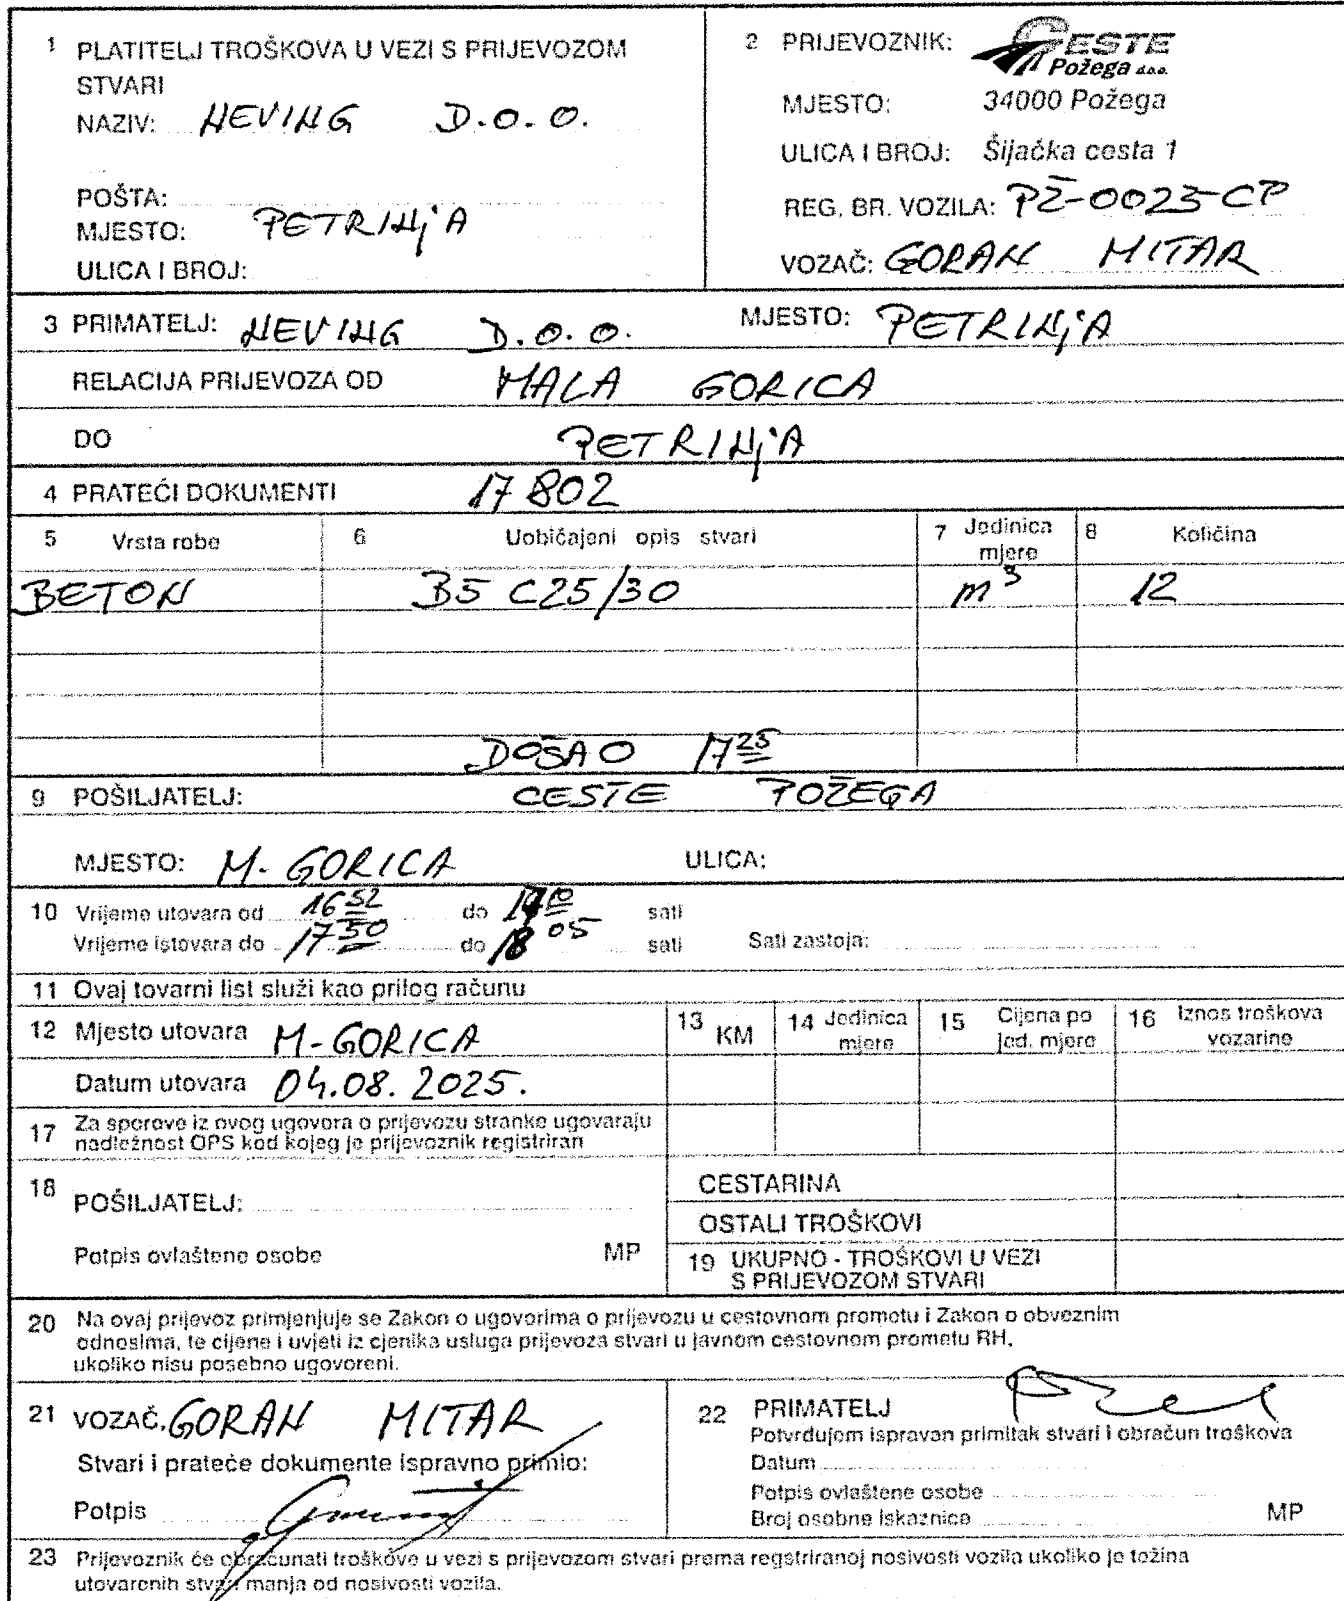 1 PLATITELJ TROŠKOVA U VEZI S PRIJEVOZOM
STVARI
NAZIV: NEVING D.O.O.
POŠTA:
MJESTO: PETRINjA
ULICA I BROJ:
2 PRIJEVOZNIK: CESTE
Požega d.o.o.
MJESTO: 34000 Požega
ULICA I BROJ: Šijačka cesta 1
REG. BR. VOZILA: PŽ-0023-CP
VOZAČ: GORAN MITAR
3 PRIMATELJ: NEVING D.O.O. MJESTO: PETRINjA
RELACIJA PRIJEVOZA OD MALA GORICA
DO PETRINjA
4 PRATEĆI DOKUMENTI 17802
5 Vrsta robe 6 Uobičajeni opis stvari 7 Jedinica mjere 8 Količina
BETON B5 C25/30 m³ 12
DOŠAO 17 25
9 POŠILJATELJ: CESTE POŽEGA
MJESTO: M. GORICA ULICA:
10 Vrijeme utovara od 16 52 do 17 10 sati
Vrijeme istovara do 17 50 do 18 05 sati Sati zastoja:
11 Ovaj tovarni list služi kao prilog računu
12 Mjesto utovara M-GORICA
Datum utovara 04.08.2025.
13 KM 14 Jedinica mjere 15 Cijena po jed. mjere 16 Iznos troškova vozarine
17 Za sporove iz ovog ugovora o prijevozu stranke ugovaraju
nadležnost OPS kod kojeg je prijevoznik registriran
18 POŠILJATELJ:
Potpis ovlaštene osobe MP
CESTARINA
OSTALI TROŠKOVI
19 UKUPNO - TROŠKOVI U VEZI
S PRIJEVOZOM STVARI
20 Na ovaj prijevoz primjenjuje se Zakon o ugovorima o prijevozu u cestovnom prometu i Zakon o obveznim
odnosima, te cijene i uvjeti iz cjenika usluga prijevoza stvari u javnom cestovnom prometu RH,
ukoliko nisu posebno ugovoreni.
21 VOZAČ. GORAN MITAR
Stvari i prateće dokumente ispravno primio:
Potpis
22 PRIMATELJ
Potvrđujem ispravan primitak stvari i obračun troškova
Datum
Potpis ovlaštene osobe
Broj osobne iskaznice MP
23 Prijevoznik će obračunati troškove u vezi s prijevozom stvari prema regstriranoj nosivosti vozila ukoliko je težina
utovarenih stvari manja od nosivosti vozila.